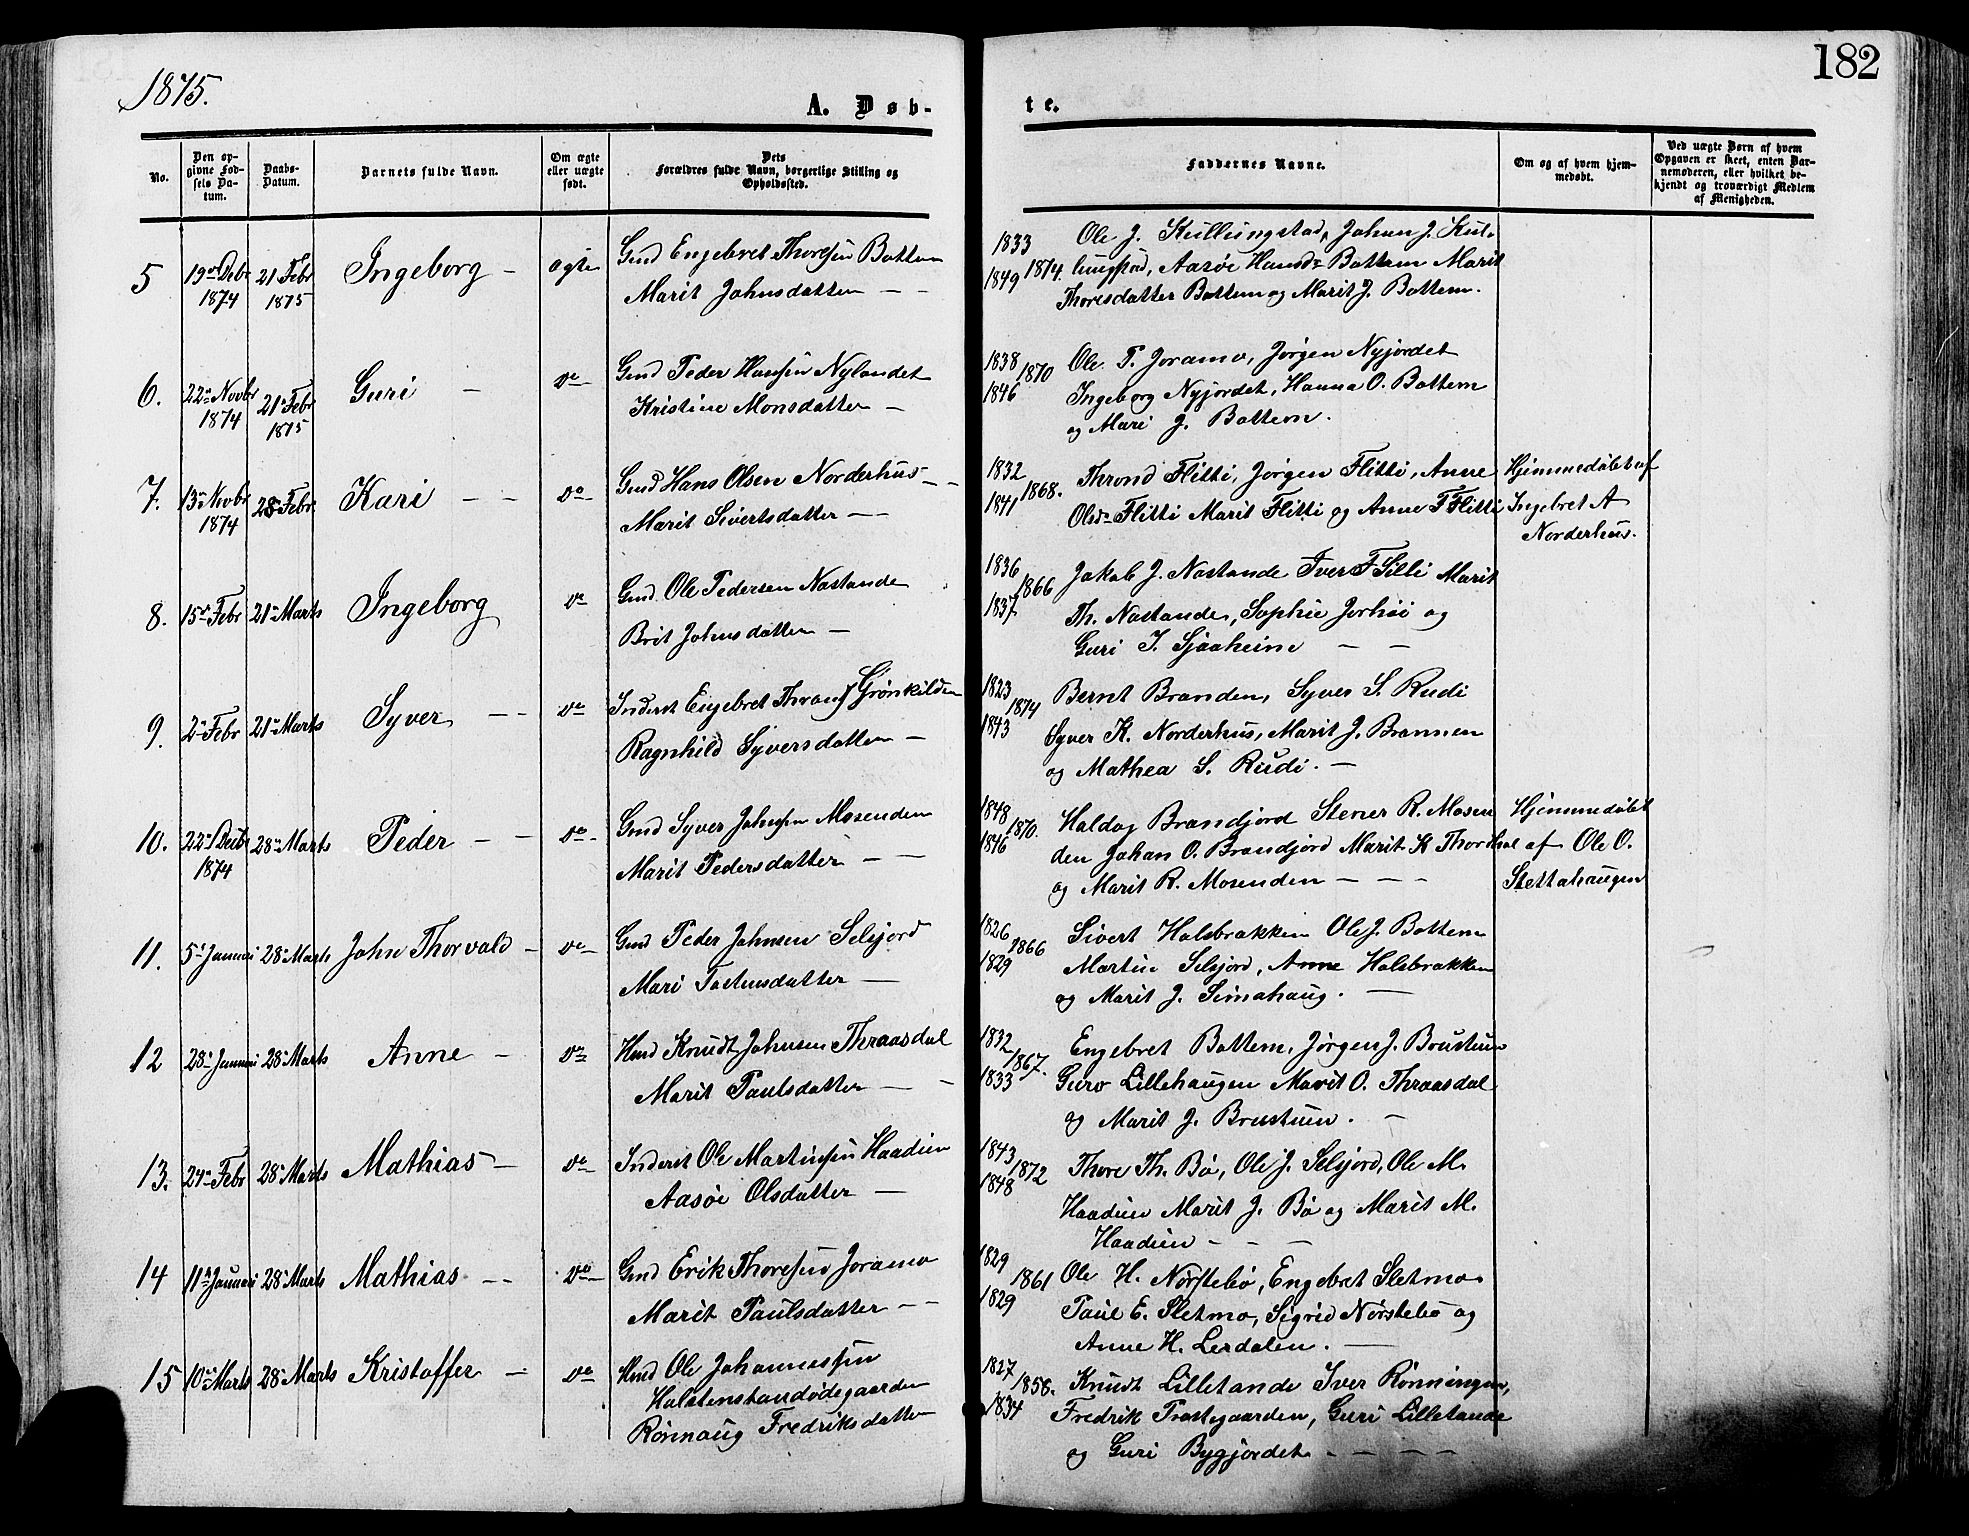 1875.
182
A. Døb-
te.
No.
Den op-
givne Fød-
sels Da-
tum.
Daabs-
Datum.
Barnets fulde Navn.
Om ægte
eller uægte
født.
Dets
Forældres fulde Navn, borgerlige Stilling og
Opholdssted.
Faddernes Navne.
Om og af hvem hjem-
medøbt.
Ved uægte Børn af hvem
Opgaven er skeet, enten Bar-
nemoderen, eller hvilket be-
kjendt og troværdigt Medlem
af Menigheden.
5
19de Debr
1874
21 Febr
1875
Ingeborg -
ægte
Gmd Engebret Thoresen Bottem
Marit Johnsdatter - -
1833
1849
1874.
Ole J. Kullungstad, Johan J. Kul-
lungstad, Aasøe Hansdr Bottem Marit
Thoresdatter Bottem og Marit J. Bottem.
6.
22de Novbr
1874
21de Febr
1875
Guri -
do
Gmd Peder Hansen Nylandet
Kristine Monsdatter -
1838
1846
1870
Ole P. Joramo, Jørgen Nyjordet
Ingeborg Nyjordet, Hanna O. Bottem
og Mari J. Bottem.
7.
13de Novbr
1874
28de Febr
Kari - -
do
Gmd Hans Olsen Norderhus - -
Marit Sivertsdatter - -
1832
1841
1868.
Thrond Flitti, Jørgen Flitti, Anne
Olsdr Flitti Marit Flitti og Anne F Flitti
Hjemmedøbt af
Ingebret A
Norderhus.
8.
15de Febr
21de Marts
Ingeborg
do
Gmd. Ole Pedersen Nastande
Brit Johnsdatter -
1836
1837
1866
Jakob J. Nastande Iver F Silli Marit
Th. Nastande, Sophie Jorhøi og
Guri I. Sjaaheim - -
9.
2de Febr
21de Marts
Syver - -
do
Inderst Engebret Thorans Grønkilden
Ragnhild Syversdatter -
1823
1843
1874
Bernt Branden, Syver S. Rudi
Syver K. Norderhus, Marit J. Brannen
og Mathea S. Rudi. -
10.
22de Debr
1874
28de Marts
Peder - -
do
Gmd Syver Johnsen Mosenden
Marit Pedersdatter - -
1848
1846
1870.
Haldog Brandjord Stener R. Mosen
den Johan O. Brandjord Marit K Thordhol
og Marit R. Mosenden - - -
Hjemmedøbt
af Ole O.
Slettahaugen
11.
5te Januar
28de Marts
John Thorvald -
do
Gmd Peder Johnsen Selsjord
Mari Tostensdatter -
1826
1829
1866
Sivert Halsbrakken Ole J. Bottem
Martin Selsjord, Anne Halsbrakken
og Marit J. Simahaug. -
12
28de Januar
28de Marts
Anne -
do
Hmd Knudt Johnsen Thraasdal
Marit Paulsdatter - -
1832
1833
1867.
Engebret Bottem, Jørgen J. Brustuen
Guro Lillehaugen Marit O. Thraasdal
og Marit J. Brustuen. -
13.
24de Febr
28de Marts
Mathias -
do
Inderst Ole Martinsen Haadien
Aasøe Olsdatter -
1843
1848
1872
Thore Th. Bø, Ole J. Selsjord, Ole M.
Haadien Marit J. Bø og Marit M.
Haadien - - -
14
11te Januar
28de Marts
Mathias - -
do
Gmd Erik Thoresen Joramo
Marit Paulsdatter - -
1829
1829
1861
Ole H. Nørstebø, Engebret Sletmo
Paul E. Sletmo, Sigrid Nørstebø og
Anne H. Lerdalen. -
15
10de Marts
28de Marts
Kristoffer -
do
Hmd Ole Johannessen
Holstenstandødegaarden
Rønnaug Fredriksdatter
1827
1834
1858.
Knudt Lilletande Iver Rønningen,
Fredrik Prostegaarden, Guri Lilletande
og Guri Bygjordet - - - -